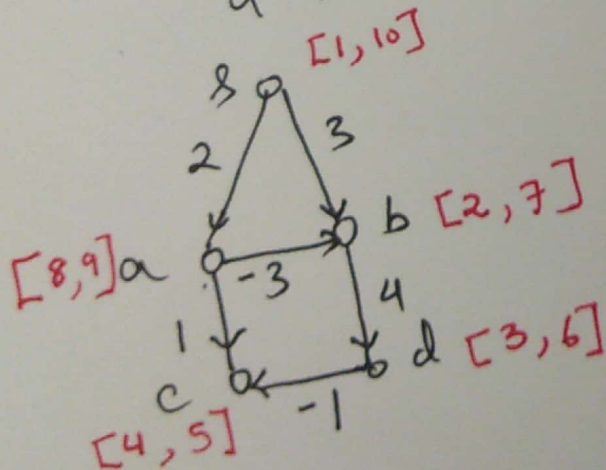 [1,10]
s
2
3
b [2,7]
[8,9]a
-3
4
1
d [3,6]
c
-1
[4,5]